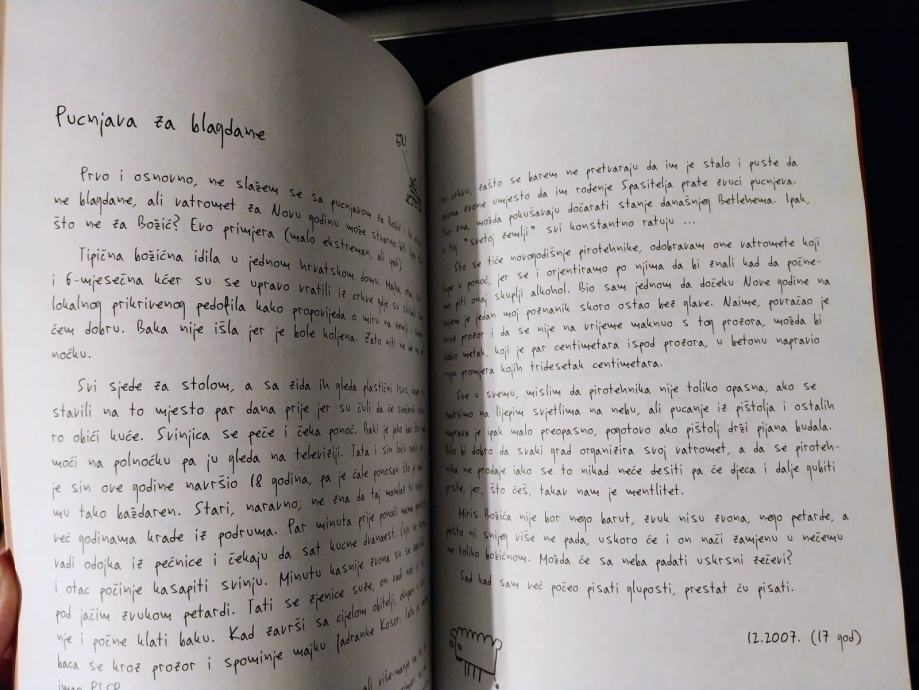 Pucnjava za blagdane
Prvo i osnovno, ne slažem se sa pucnjavom za
ne blagdane, ali vatromet za Novu godinu može stvarno biti
što ne za Božić? Evo primjera (malo ekstreman, ali
Tipična božićna idila u jednom hrvatskom domu. Majka, otac, sin
i 6-mjesečna kćer su se upravo vratili iz crkve gdje su slušali
lokalnog prikrivenog pedofila kako propovijeda o miru na zemlji i
ćem dobru. Baka nije išla jer je bole koljena. Zato
noćku.
Svi sjede za stolom, a sa zida ih gleda plastični Isus,
stavili na to mjesto par dana prije jer su čuli da će svećenik
ro obići kuće. Svinjica se peče i čeka ponoć. Baki je jako žao što
moći na polnoćku pa ju gleda na televiziji. Tata i sin
je sin ove godine navršio 18 godina, pa je ćale ponosan što je
mu tako baždaren. Stari, naravno, ne zna da taj
već godinama krade iz podruma. Par minuta prije ponoći
vadi odojka iz pećnice i čekaju da sat kucne dvanaest.
i otac počinje kasapiti svinju. Minutu kasnije zvona su se
pod jačim zvukom petardi. Tati se zjenice suze, on vadi nož iz
nje i počne klati baku. Kad završi sa cijelom obitelji,
baca se kroz prozor i spominje majku Jadranke Kosor.
imao PTSP.
crkvu, zašto se barem ne pretvaraju da im je stalo i puste da
zvona zvone umjesto da im rođenje Spasitelja prate zvuci pucnjeva.
Tko zna, možda pokušavaju dočarati stanje današnjeg Betlehema. Ipak,
u toj "svetoj zemlji" svi konstantno ratuju ...
Što se tiče novogodišnje pirotehnike, odobravam one vatromete koji
lupe u ponoć, jer se i orjentiramo po njima da bi znali kad da počne-
mo piti onaj skuplji alkohol. Bio sam jednom da dočeku Nove godine na
kojem je jedan moj poznanik skoro ostao bez glave. Naime, povraćao je
kroz prozor i da se nije na vrijeme maknuo s tog prozora, možda bi
dobio metak, koji je par centimetara ispod prozora, u betonu napravio
rupu promjera kojih tridesetak centimetara.
Sve u svemu, mislim da pirotehnika nije toliko opasna, ako se
zadržimo na lijepim svjetlima na nebu, ali pucanje iz pištolja i ostalih
naprava je ipak malo preopasno, pogotovo ako pištolj drži pijana budala.
Bilo bi dobro da svaki grad organizira svoj vatromet, a da se piroteh-
nika ne prodaje iako se to nikad neće desiti pa će djeca i dalje gubiti
prste, jer, što ćeš, takav nam je mentlitet.
Miris Božića nije bor nego barut, zvuk nisu zvona, nego petarde, a
pošto ni snijeg više ne pada, uskoro će i on naći zamjenu u nečemu
ne toliko božićnom. Možda će sa neba padati uskrsni zečevi?
Sad kad sam već počeo pisati gluposti, prestat ću pisati.
12.2007. (17 god)